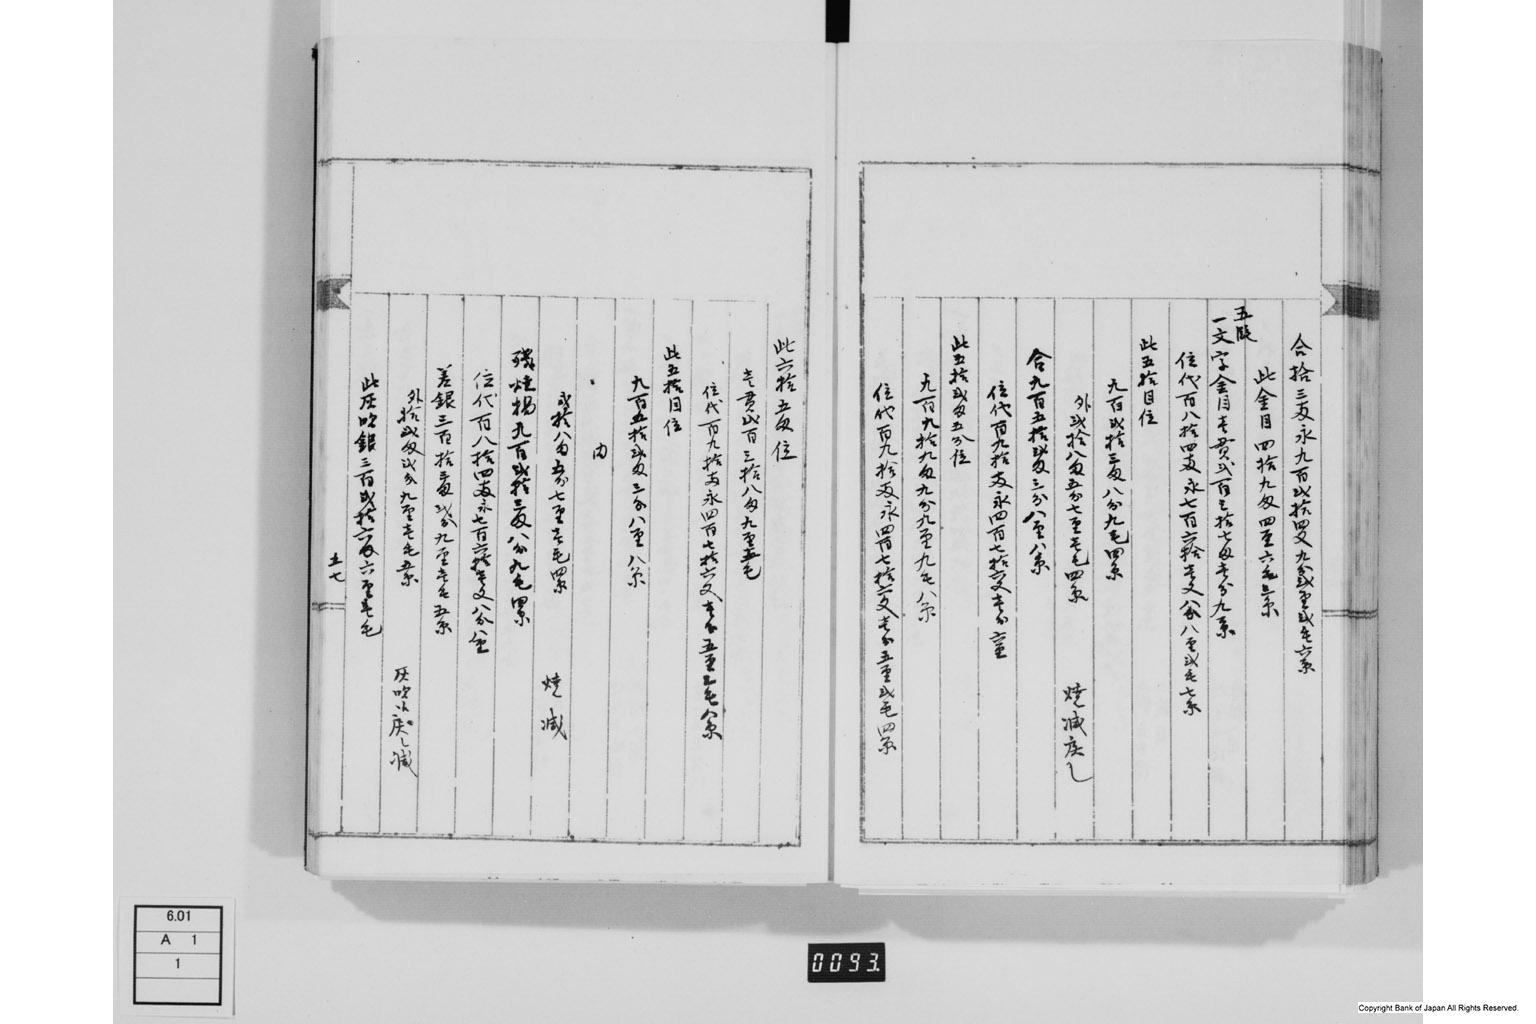 合拾三両永九百弐拾四文九分弐厘弐毛六糸
此金目四拾九匁四厘六毛三糸
五段
一文字金目壱貫弐百三拾七匁壱分九糸
位代百八拾四両永七百六拾壱文八分八厘弐毛七糸
此五拾目位
九百弐拾三匁八分九毛四糸
外弐拾八匁五分七厘壱毛四糸 焼減戻し
合九百五拾弐匁三分八厘八糸
位代百九拾両永四百七拾六文壱分六厘
此五拾弐匁五分位
九百九拾九匁九分九厘九毛八糸
位代百九拾両永四百七拾六文壱分五厘弐毛四糸
此六拾五匁位
壱貫弐百三拾八匁九厘五毛
位代百九拾両永四百七拾六文壱分五厘三毛八糸
此五拾目位
九百五拾弐匁三分八厘八糸
内
弐拾八匁五分七厘壱毛四糸 焼減
残焼揚九百弐拾三匁八分九毛四糸
位代百八拾四両永七百六拾壱文八分八厘
差銀三百拾三匁弐分九厘壱毛五糸
外拾弐匁弐分九厘壱毛五糸 灰吹吹戻し減
此灰吹銀三百弐拾六匁六厘壱毛
五七
6.01
A 1
1
0093.
Copyright Bank of Japan All Rights Reserved.